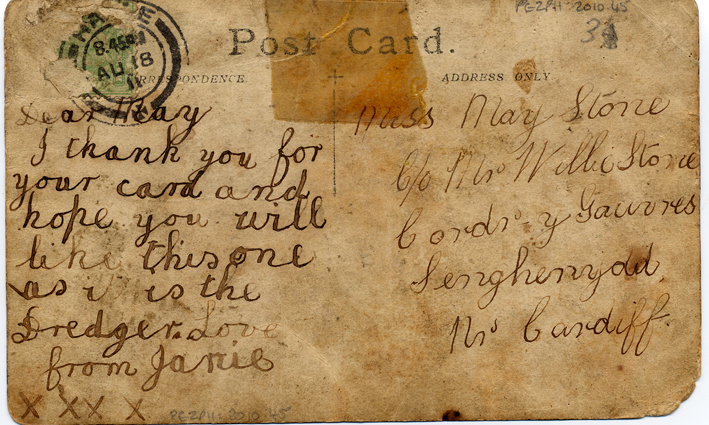 PEZPH : 2010.45
HAYLE
8.45 AM
AU 18
11
Post Card.
CORRESPONDENCE
ADDRESS ONLY
Dear May
I thank you for
your card and
hope you will
like this one
as it is the
Dredger. Love
from Janie
X XX X
Miss May Stone
C/o Mr Willie Stone
Senghenydd,
Nr Cardiff.
PEZPH : 2010.45